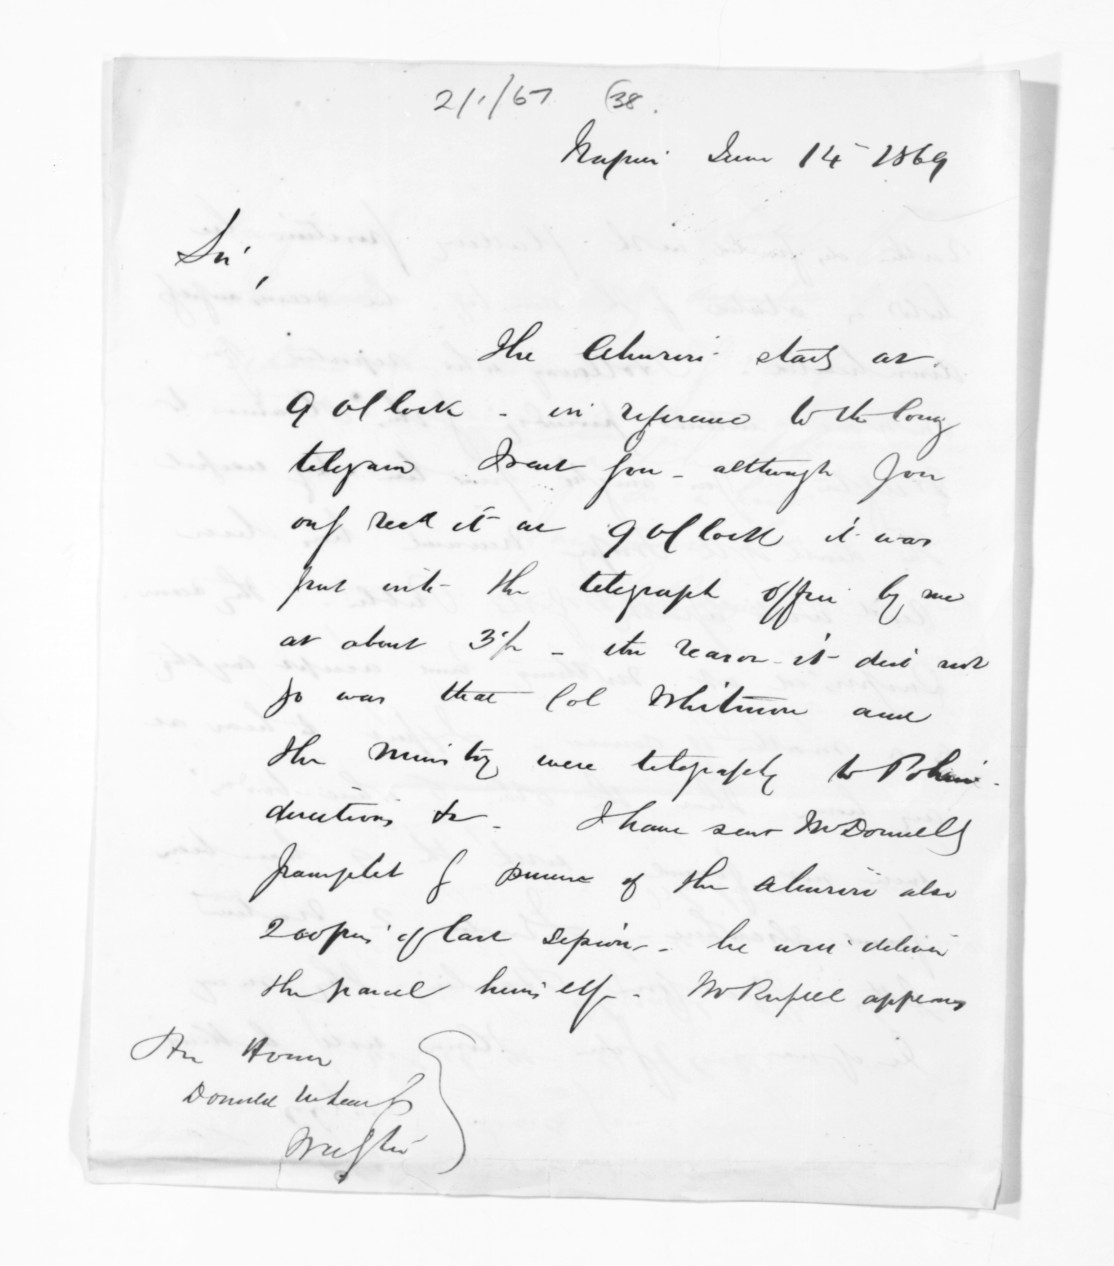 2/1/67 38.
Napier June 14 1869
Sir,
The Ahuriri starts at
9 oClock - in reference to the long
telegram I sent you - although you
only recd it at 9 oClock it was
put into the telegraph office by me
at about 3 - the reason it did not
go was that Col Whitmore and
the ministry were telegraphg to
directions &c - I have sent McDonnells
Pamphlet by purser of the Ahuriri also
2 copies of last session - he will deliver
the parcel himself - Mr Russell appears
His Honor
Donald McLean
Wellgton